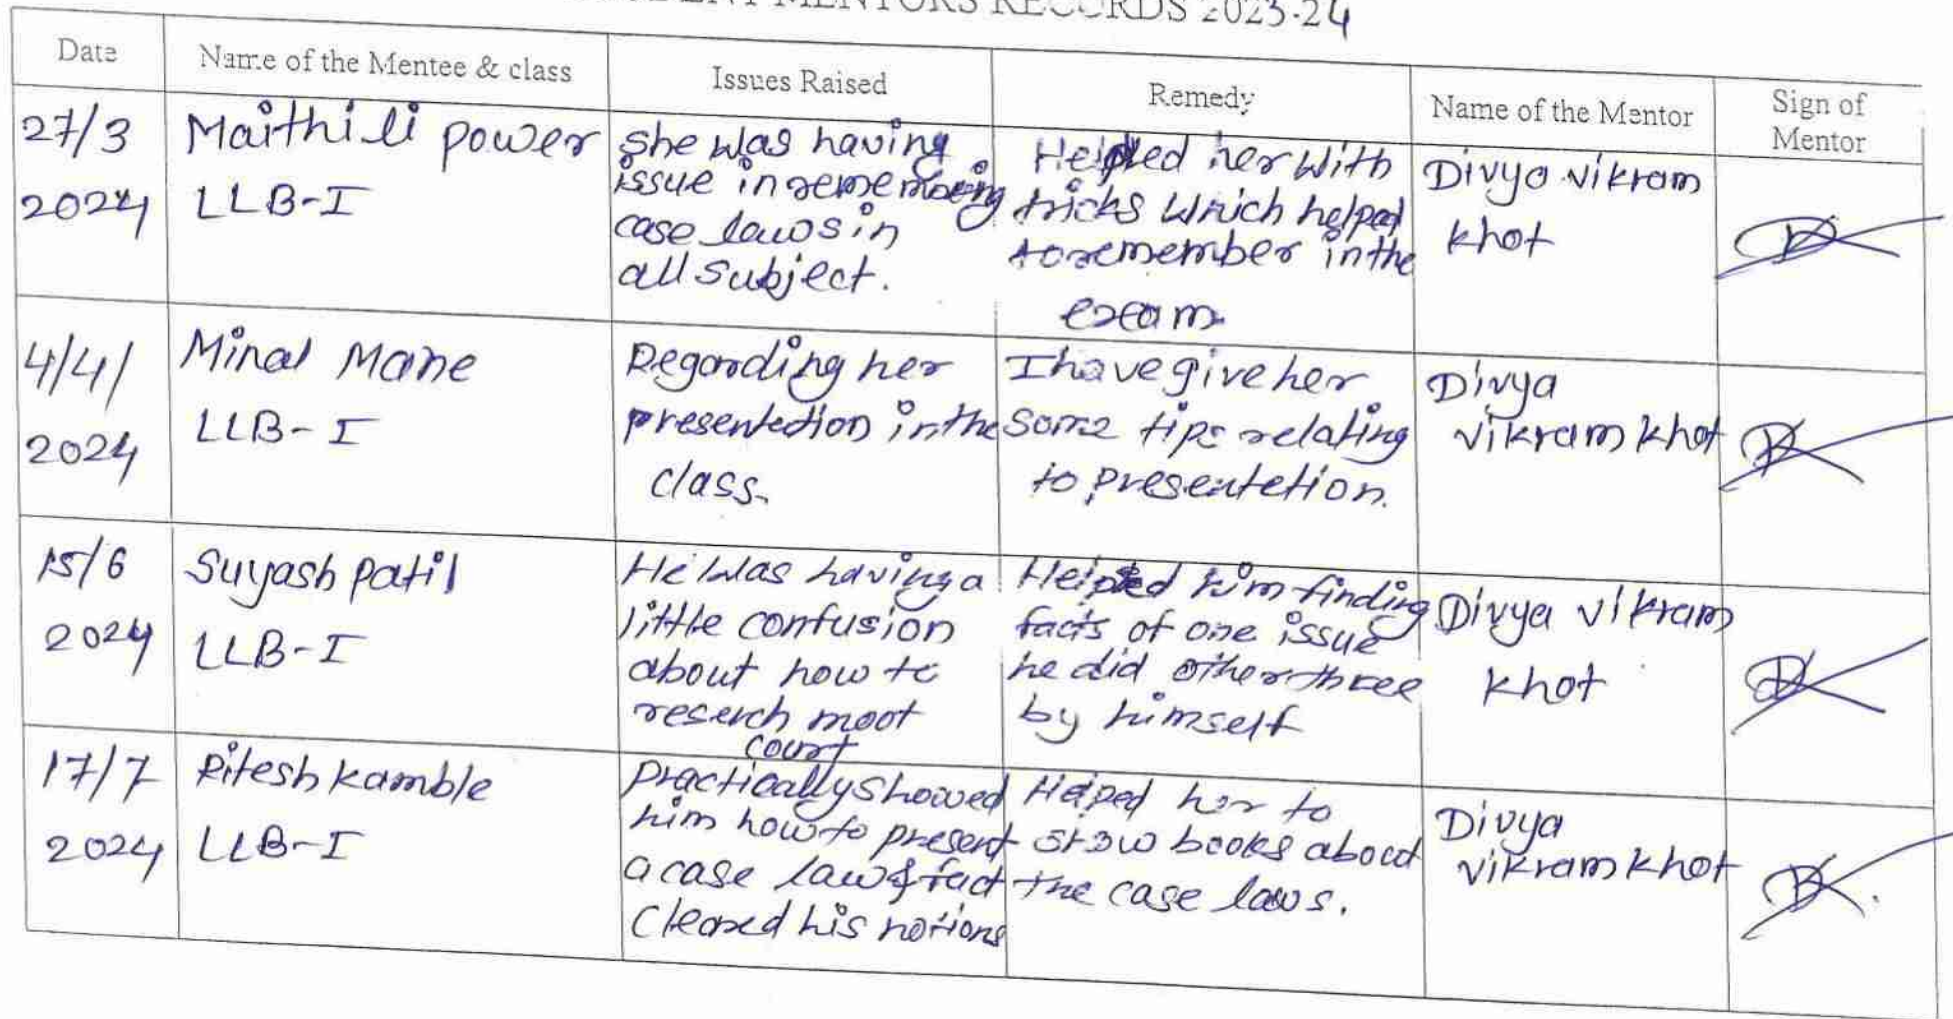 STUDENT MENTORS RECORDS 2023-24
Date
Name of the Mentee & class
Issues Raised
Remedy
Name of the Mentor
Sign of
Mentor
27/3
2024
Maithili power
LLB-I
She was having
issue in remembering
case laws in
all subject.
Helped her with
tricks which helped
to remember in the
exam
Divya vikram
khot
4/4/
2024
Minal Mane
LLB-I
Regarding her
presentation in the
class.
I have give her
some tips relating
to presentetion.
Divya
vikram khot
15/6
2024
Suyash patil
LLB-I
He was having a
little confusion
about how to
reserch moot
court
Helped him finding
facts of one issue
he did other three
by himself
Divya vikram
khot
17/7
2024
Ritesh kamble
LLB-I
practically showed
him how to present
a case law & fact
Cleared his notions
Helped her to
books about
the case laws.
Divya
vikram khot